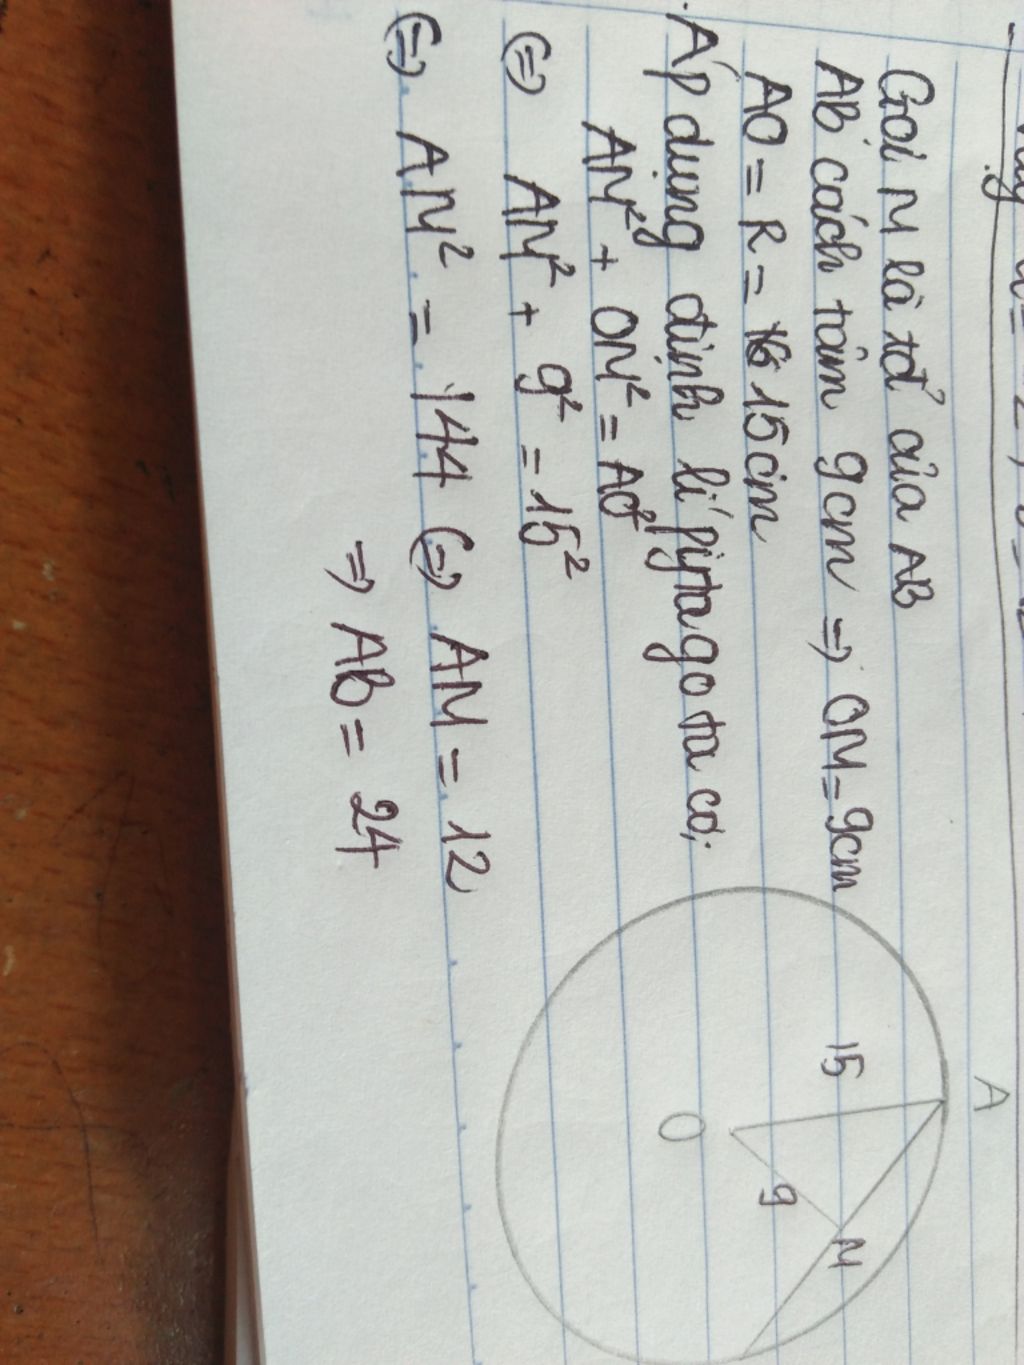 Gọi M là tđ của AB
AB cách tâm 9cm => OM=9cm
AO = R = 15cm
Áp dụng định lí pytago ta có:
AM² + OM² = AO²
(=) AM² + 9² = 15²
(=) AM² = 144 (=) AM = 12
=) AB = 24
A
15
O
9
M